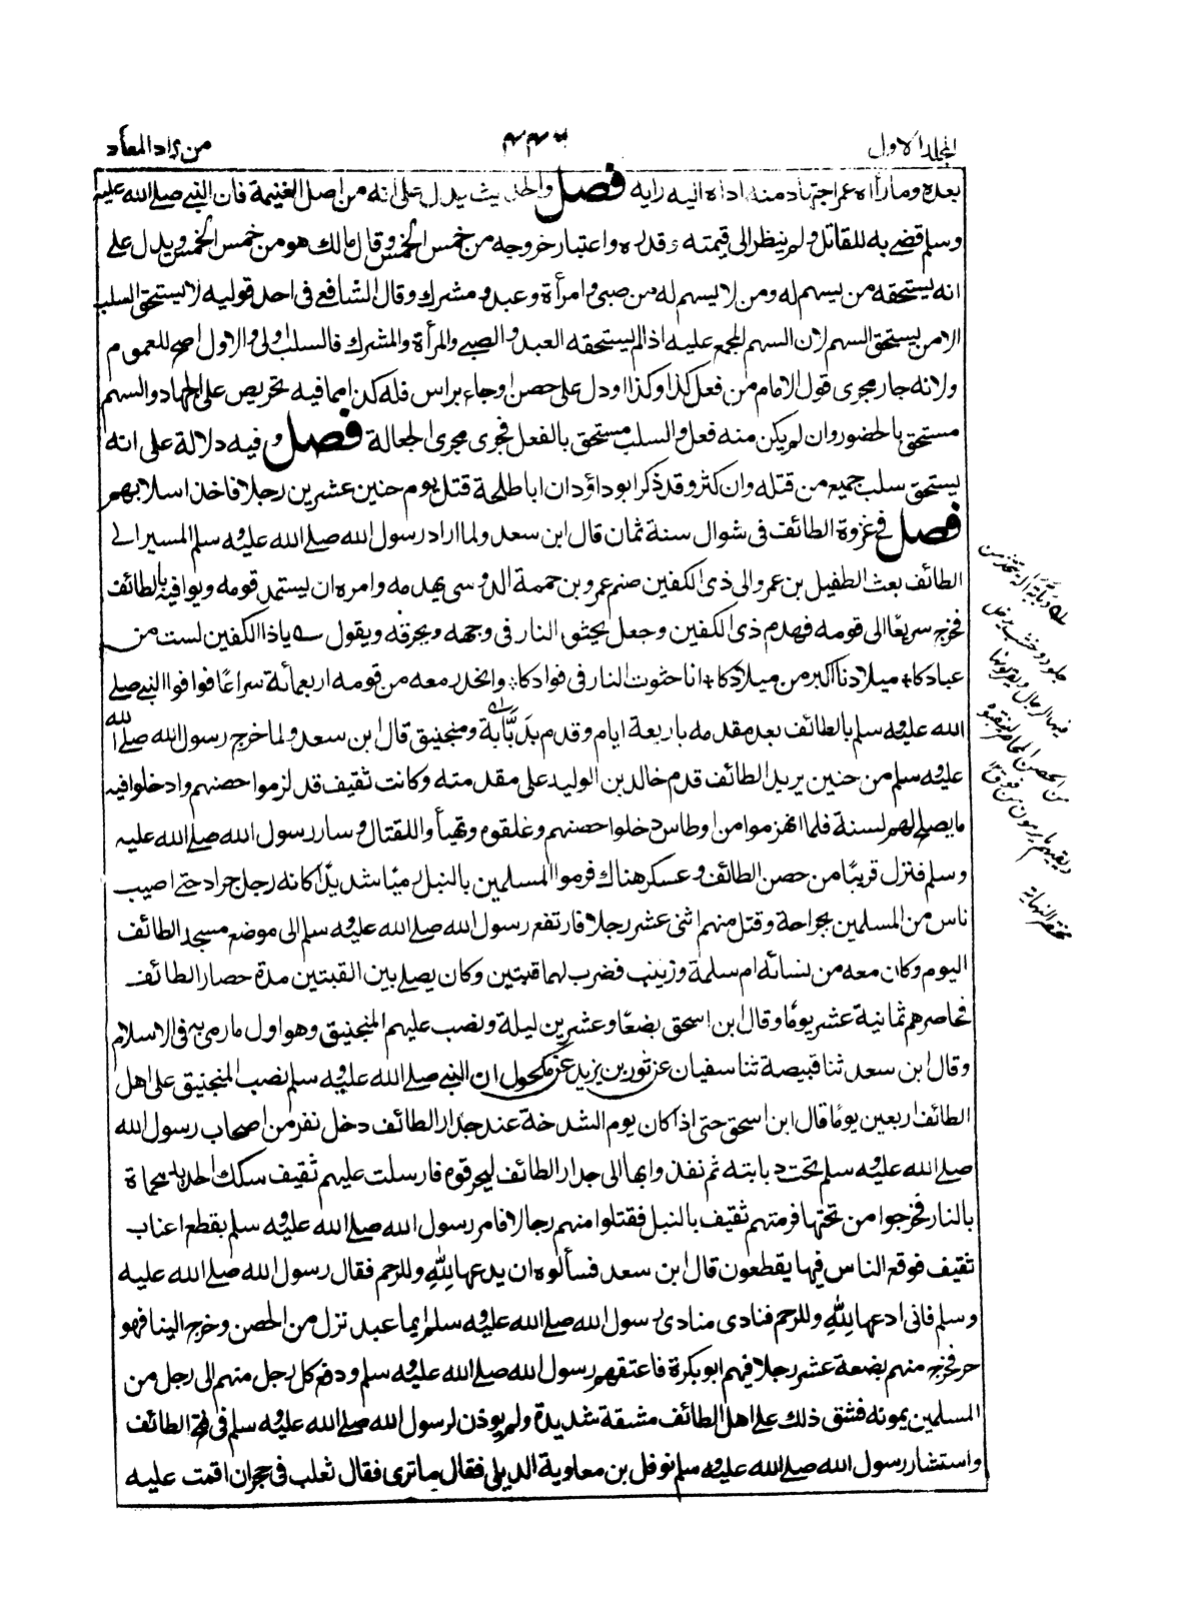 المجلد الاول
٤٤٣
من زاد المعاد
بعده وما رأه عمر اجتهاد منه اداه اليه رايه فصل والحديث يدل على انه من اصل الغنيمة فان النبي صلے الله عليه
وسلم قضے به للقاتل ولم ينظر الى قيمته وقدره واعتبار خروجه من خمس الخمس وقال مالك هو من خمس الخمس ويدل علے
انه يستحقه من يسهم له ومن لا يسهم له من صبى وامرأة وعبد ومشرك وقال الشافعے فى احد قوليه لا يستحق السلب
الا من يستحق السهم لان السهم المجمع عليه اذا لم يستحقه العبد والصبے والمرأة والمشرك فالسلب اولى والاول اصح للعموم
ولانه جار مجرى قول الامام من فعل كذا وكذا او دل على حصن او جاء براس فله كذا مما فيه تحريض على الجهاد والسهم
مستحق بالحضور وان لم يكن منه فعل والسلب مستحق بالفعل فجرى مجرى الجعالة فصل وفيه دلالة على انه
يستحق سلب جميع من قتله وان كثر وقد ذكر ابو داؤد ان ابا طلحة قتل يوم حنين عشرين رجلا فاخذ اسلابهم
فصل فے غزوة الطائف فى شوال سنة ثمان قال ابن سعد ولما اراد رسول الله صلے الله عليه وسلم المسير الے
الطائف بعث الطفيل بن عمرو الى ذى الكفين صنم عمرو بن حممة الدوسى يهدمه وامره ان يستمد قومه ويوافيه بالطائف
فخرج سريعًا الى قومه فهدم ذى الكفين وجعل يحثى النار فى وجهه ويحرقه ويقول ے ياذا الكفين لست من
عبادكا٭ ميلادنا اكبر من ميلادكا٭ انا حثوت النار فى فوادكا٭ وانحدر معه من قومه اربعمائة سراعًا فوافوا النبے صلے
الله عليه وسلم بالطائف بعد مقدمه باربعة ايام وقدم بدَبَّابة ومنجنيق قال ابن سعد ولما خرج رسول الله صلے الله
عليه وسلم من حنين يريد الطائف قدم خالد بن الوليد على مقدمته وكانت ثقيف قد لزموا حصنهم وادخلوا فيه
ما يصلح لهم لسنة فلما انهزموا من اوطاس دخلوا حصنهم وغلقوه وتهيأوا للقتال وسار رسول الله صلے الله عليه
وسلم فنزل قريبًا من حصن الطائف وعسكر هناك فرموا المسلمين بالنبل رميًا شديدًا كانه رجل جراد حتے اصيب
ناس من المسلمين بجراحة وقتل منهم اثنى عشر رجلا فارتفع رسول الله صلے الله عليه وسلم الى موضع مسجد الطائف
اليوم وكان معه من نسائه ام سلمة وزينب فضرب لهما قبتين وكان يصلے بين القبتين مدة حصار الطائف
فحاصرهم ثمانية عشر يومًا وقال ابن اسحق بضعًا وعشرين ليلة ونصب عليهم المنجنيق وهو اول ما رمى به فى الاسلام
وقال ابن سعد ثنا قبيصة ثنا سفيان عن ثور بن يزيد عن مكحول ان النبے صلے الله عليه وسلم نصب المنجنيق على اهل
الطائف اربعين يومًا قال ابن اسحق حتى اذا كان يوم الشدخة عند جدار الطائف دخل نفر من اصحاب رسول الله
صلے الله عليه وسلم تحت دبابته ثم نفذوا بها الى جدار الطائف ليحرقوه فارسلت عليهم ثقيف سكك الحديد محماة
بالنار فخرجوا من تحتها فرمتهم ثقيف بالنبل فقتلوا منهم رجالا فامر رسول الله صلے الله عليه وسلم بقطع اعناب
ثقيف فوقع الناس فيها يقطعون قال ابن سعد فسألوه ان يدعها لِلّٰهِ وللرحم فقال رسول الله صلے الله عليه
وسلم فانى ادعها لِلّٰهِ وللرحم فنادى منادى رسول الله صلے الله عليه وسلم ايما عبد نزل من الحصن وخرج الينا فهو
حر فخرج منهم بضعة عشر رجلا فيهم ابو بكرة فاعتقهم رسول الله صلے الله عليه وسلم ودفع كل رجل منهم الى رجل من
المسلمين يمونه فشق ذلك علے اهل الطائف مشقة شديدة ولم يوذن لرسول الله صلے الله عليه وسلم فى فتح الطائف
واستشار رسول الله صلے الله عليه وسلم نوفل بن معاوية الديلى فقال ما ترى فقال ثعلب فى جحر ان اقمت عليه
دبابة الة تتخذ من
جلود وخشب يدخل
فيها الرجال ويقربونها
من الحصن المحاصر لينقبوه
وتقيهم ما يرمون من فوق ١٢
مختصر النهاية